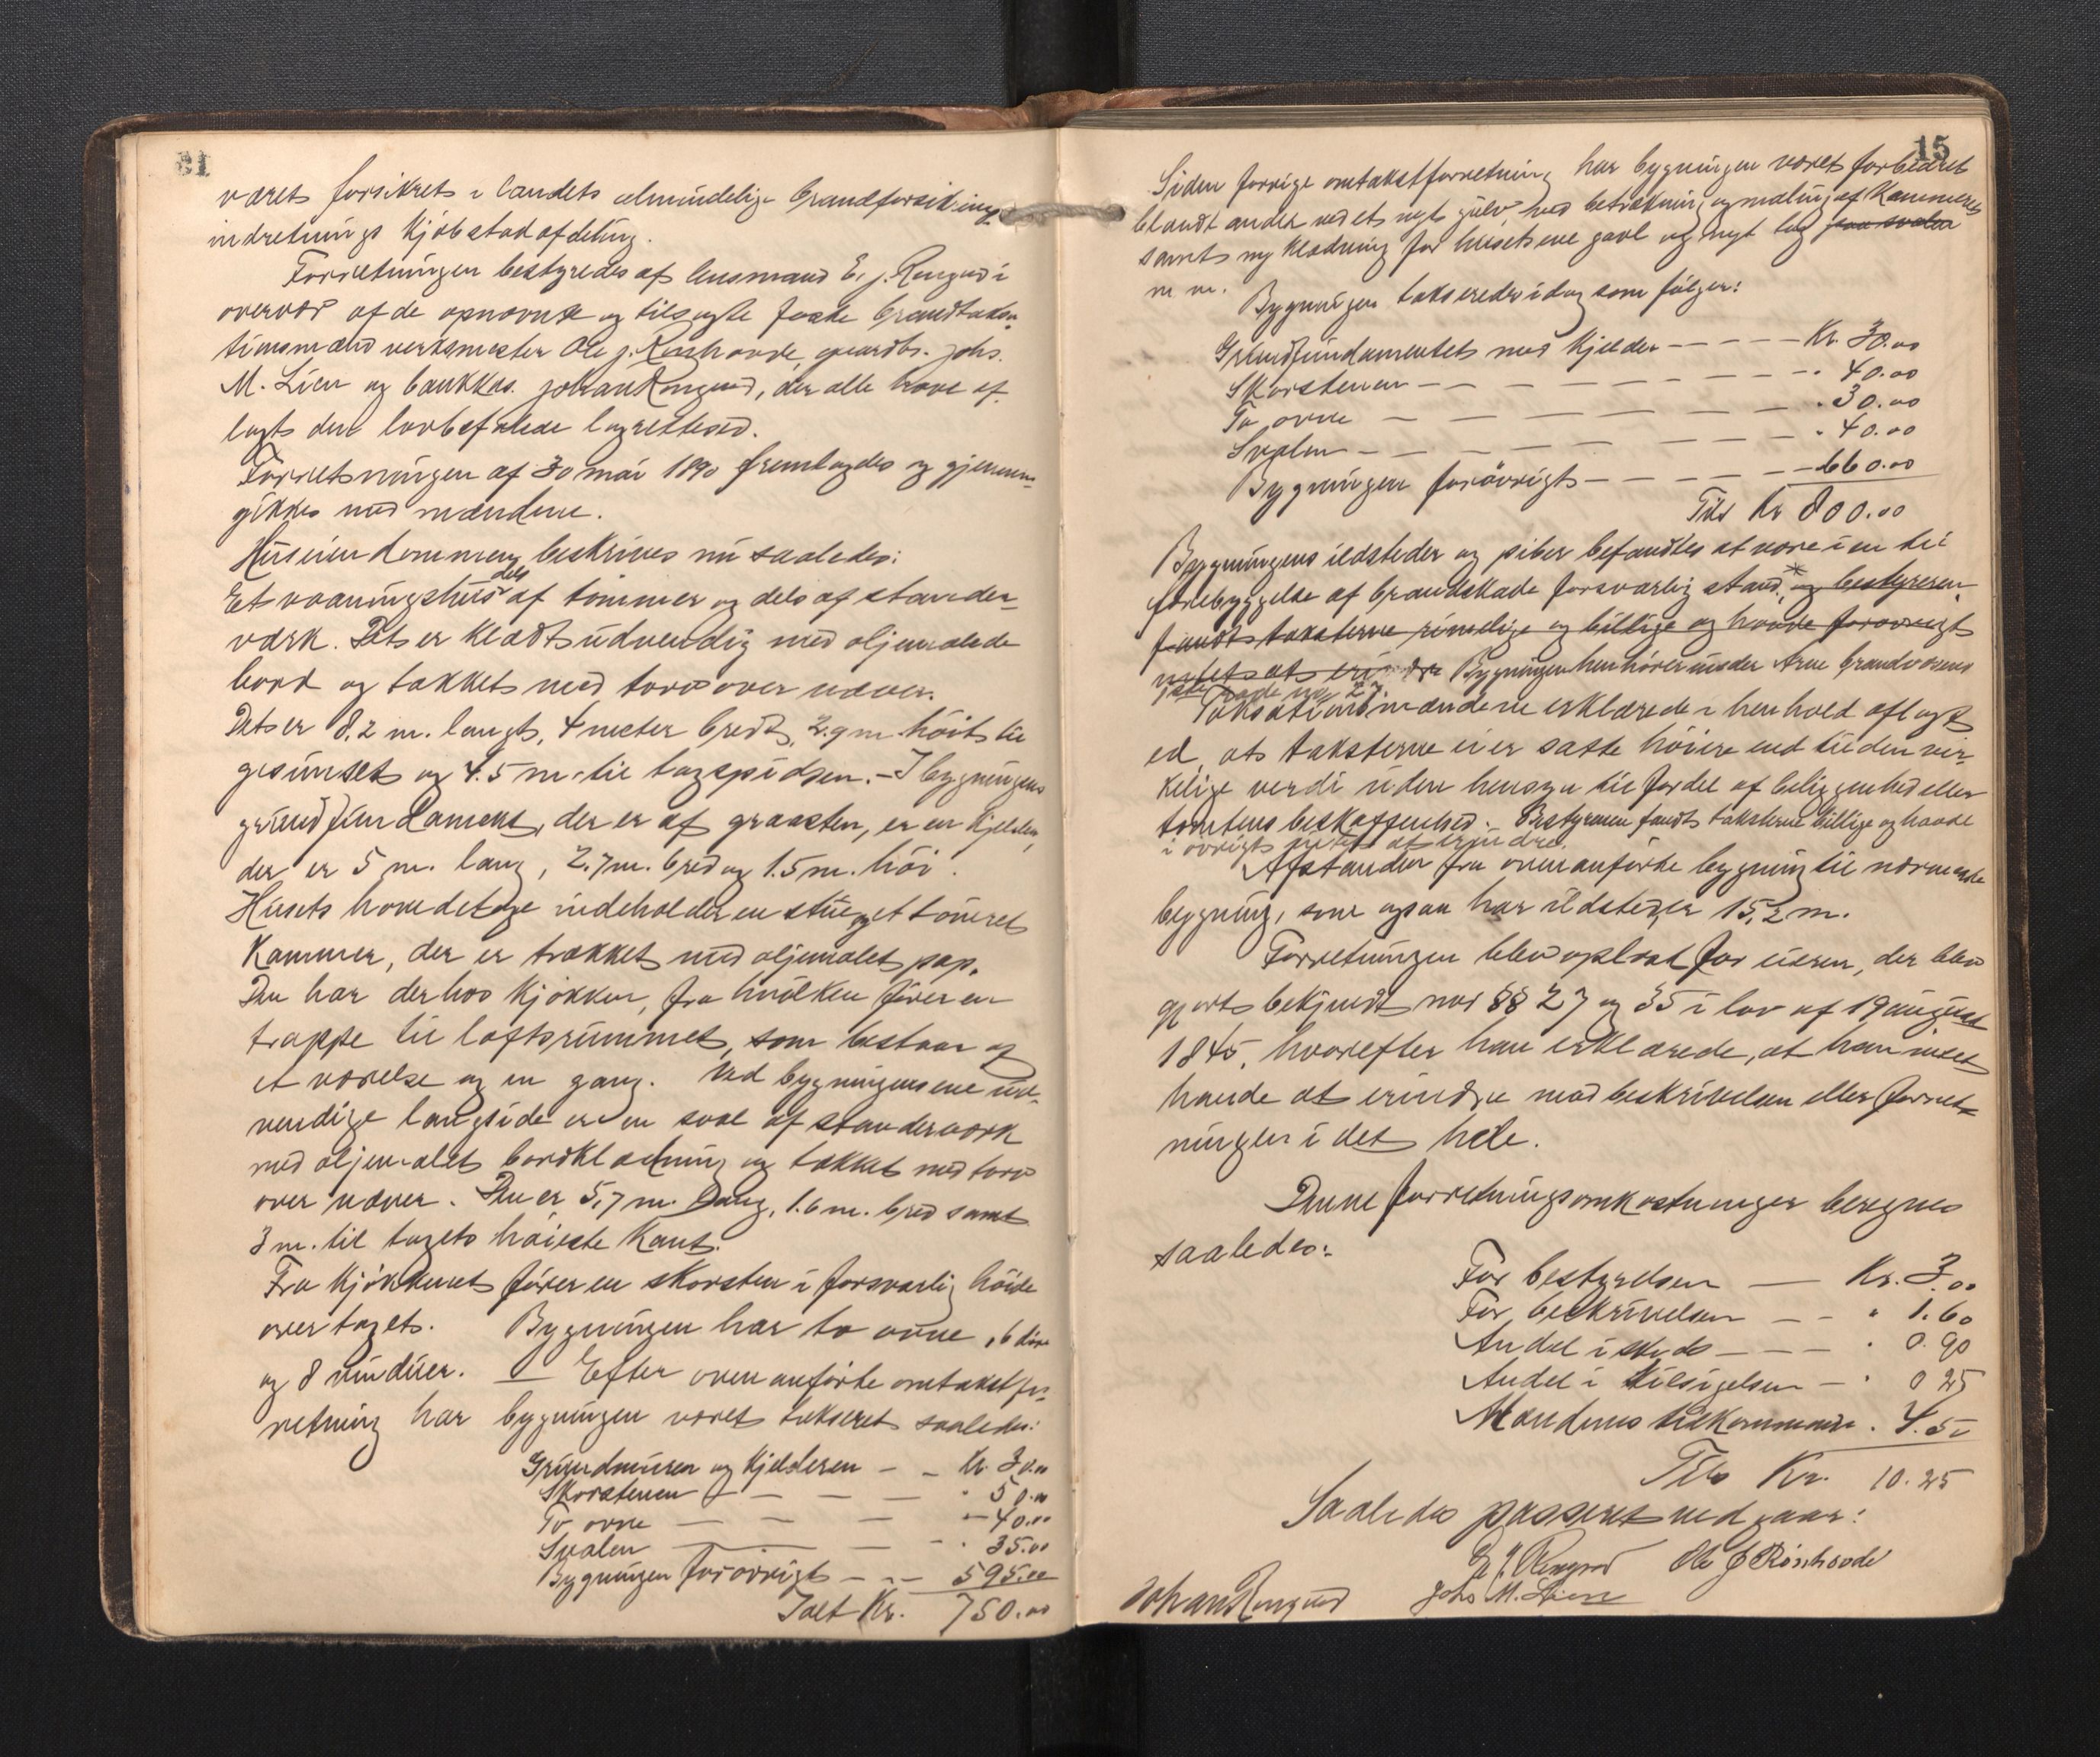 været forsikret i landets almindelige brandforsikrings
indretnings kjøbstadafdeling.
Forretningen bestyredes af lensmand E. J. Rengird i
overvær af de opnævnte og tilsagte faste brandtaksa-
tionsmænd verksmester Ole J. Røishovde, gaardbr. Johs.
M. Lien og bankkas. Johan, der alle have af-
lagt den lovbefalede lagretteed.
Forretningen af 30 mai 1890 fremlagdes og gjennem-
gikkes med mændene.
Huseiendommen beskrives nu saaledes:
Et vaaningshus dels af tømmer og dels af stænder-
værk. Det er klædt udvendig med oljemalede
bord og tækket med torv over næver.
Det er 8.2 m. langt, 4 meter bredt, 2.9 m. høit til
gesimset og 4.5 m. til tagspidsen. – I bygningens
grundfundament, der er af graasten, er en kjelder,
der er 5 m. lang, 2.7 m. bred og 1.5 m. høi.
Husets hovedetage indeholder en stue og et tømret
kammer, der er trækket med oljemalet pap.
Den har derhos kjøkken, fra hvilken fører en
trappe til loftsrummet, som bestaar og
et værelse og en gang. Ved bygningens ene ud-
vendige langside er en sval af stænderværk
med oljemalet bordklædning og tækket med torv
over næver. Den er 5,7 m. lang, 1.6 m. bred samt
3 m. til tagets høieste kant.
Fra kjøkkenet fører en skorsten i forsvarlig høide
over taget. Bygningen har to ovne, 6 døre
og 8 vinduer. — Efter ovenanførte omtakstfor-
retning har bygningen været takseret saaledes:
Grundmuren og kjelderen – – Kr. 30.00
Skorstenen – – – – " 50.00
To ovne – – – – 40.00
Svalen – – – " 35.00
Bygningen forøvrigt – – – 595.00
Ialt Kr. 750.00
15
Siden forrige omtakstforretning har bygningen været forbedret
blandt andet ved et nyt gulv, med betrækning og maling af kammeret
samt ny klædning for husets ene gavl og nyt tag paa svalen
m m.
Bygningen takseredes idag som følger:
Grundfundamentet med kjelder – – – – – Kr. 30.00
Skorstenen – – – – – – – – " 40.00
To ovne – – – – – – – " 30.00
Svalen – – – – – – – " 40.00
Bygningen forøvrigt – – – – – – 660.00
Tils Kr 800.00
Bygningens ildsteder og piber befandtes at være i en til
forebyggelse af brandskade forsvarlig stand,* og bestyreren
fandt taksterne rimelige og billige og havde forøvrigt
intet at erindre Bygningen henhører under brandvæsens
27.
Taksationsmændene erklærede i henhold aflagt
ed, at taksterne ei er satte høiere end til den vir-
kelige verdi uden hensyn til fordel af beliggenhed eller
tomtens beskaffenhed. Bestyreren fandt taksterne billige og havde
i øvrigt intet at erindre.
Afstanden fra ovenanførte bygning til nærmeste
bygning, som ogsaa har ildsted, er 15,2 m.
Forretningen blev oplæst for eieren, der blev
gjort bekjendt med §§ 27 og 35 i lov af 19 august
1845, hvorefter han erklærede, at han intet
havde at erindre mod beskrivelsen eller forret-
ningen i det hele.
Denne forretnings omkostninger beregnes
saaledes:
For bestyrelsen — Kr. 3.00
For beskrivelsen – – " 1.60
Andel i skyds – – – " 0.90
Andel i tilsigelsen – " 0 25
Mændenes tilkommende . 4.50
Tils Kr. 10.25
Saaledes passeret vedgaar:
Ole J Røishovde
Johs M. Lien